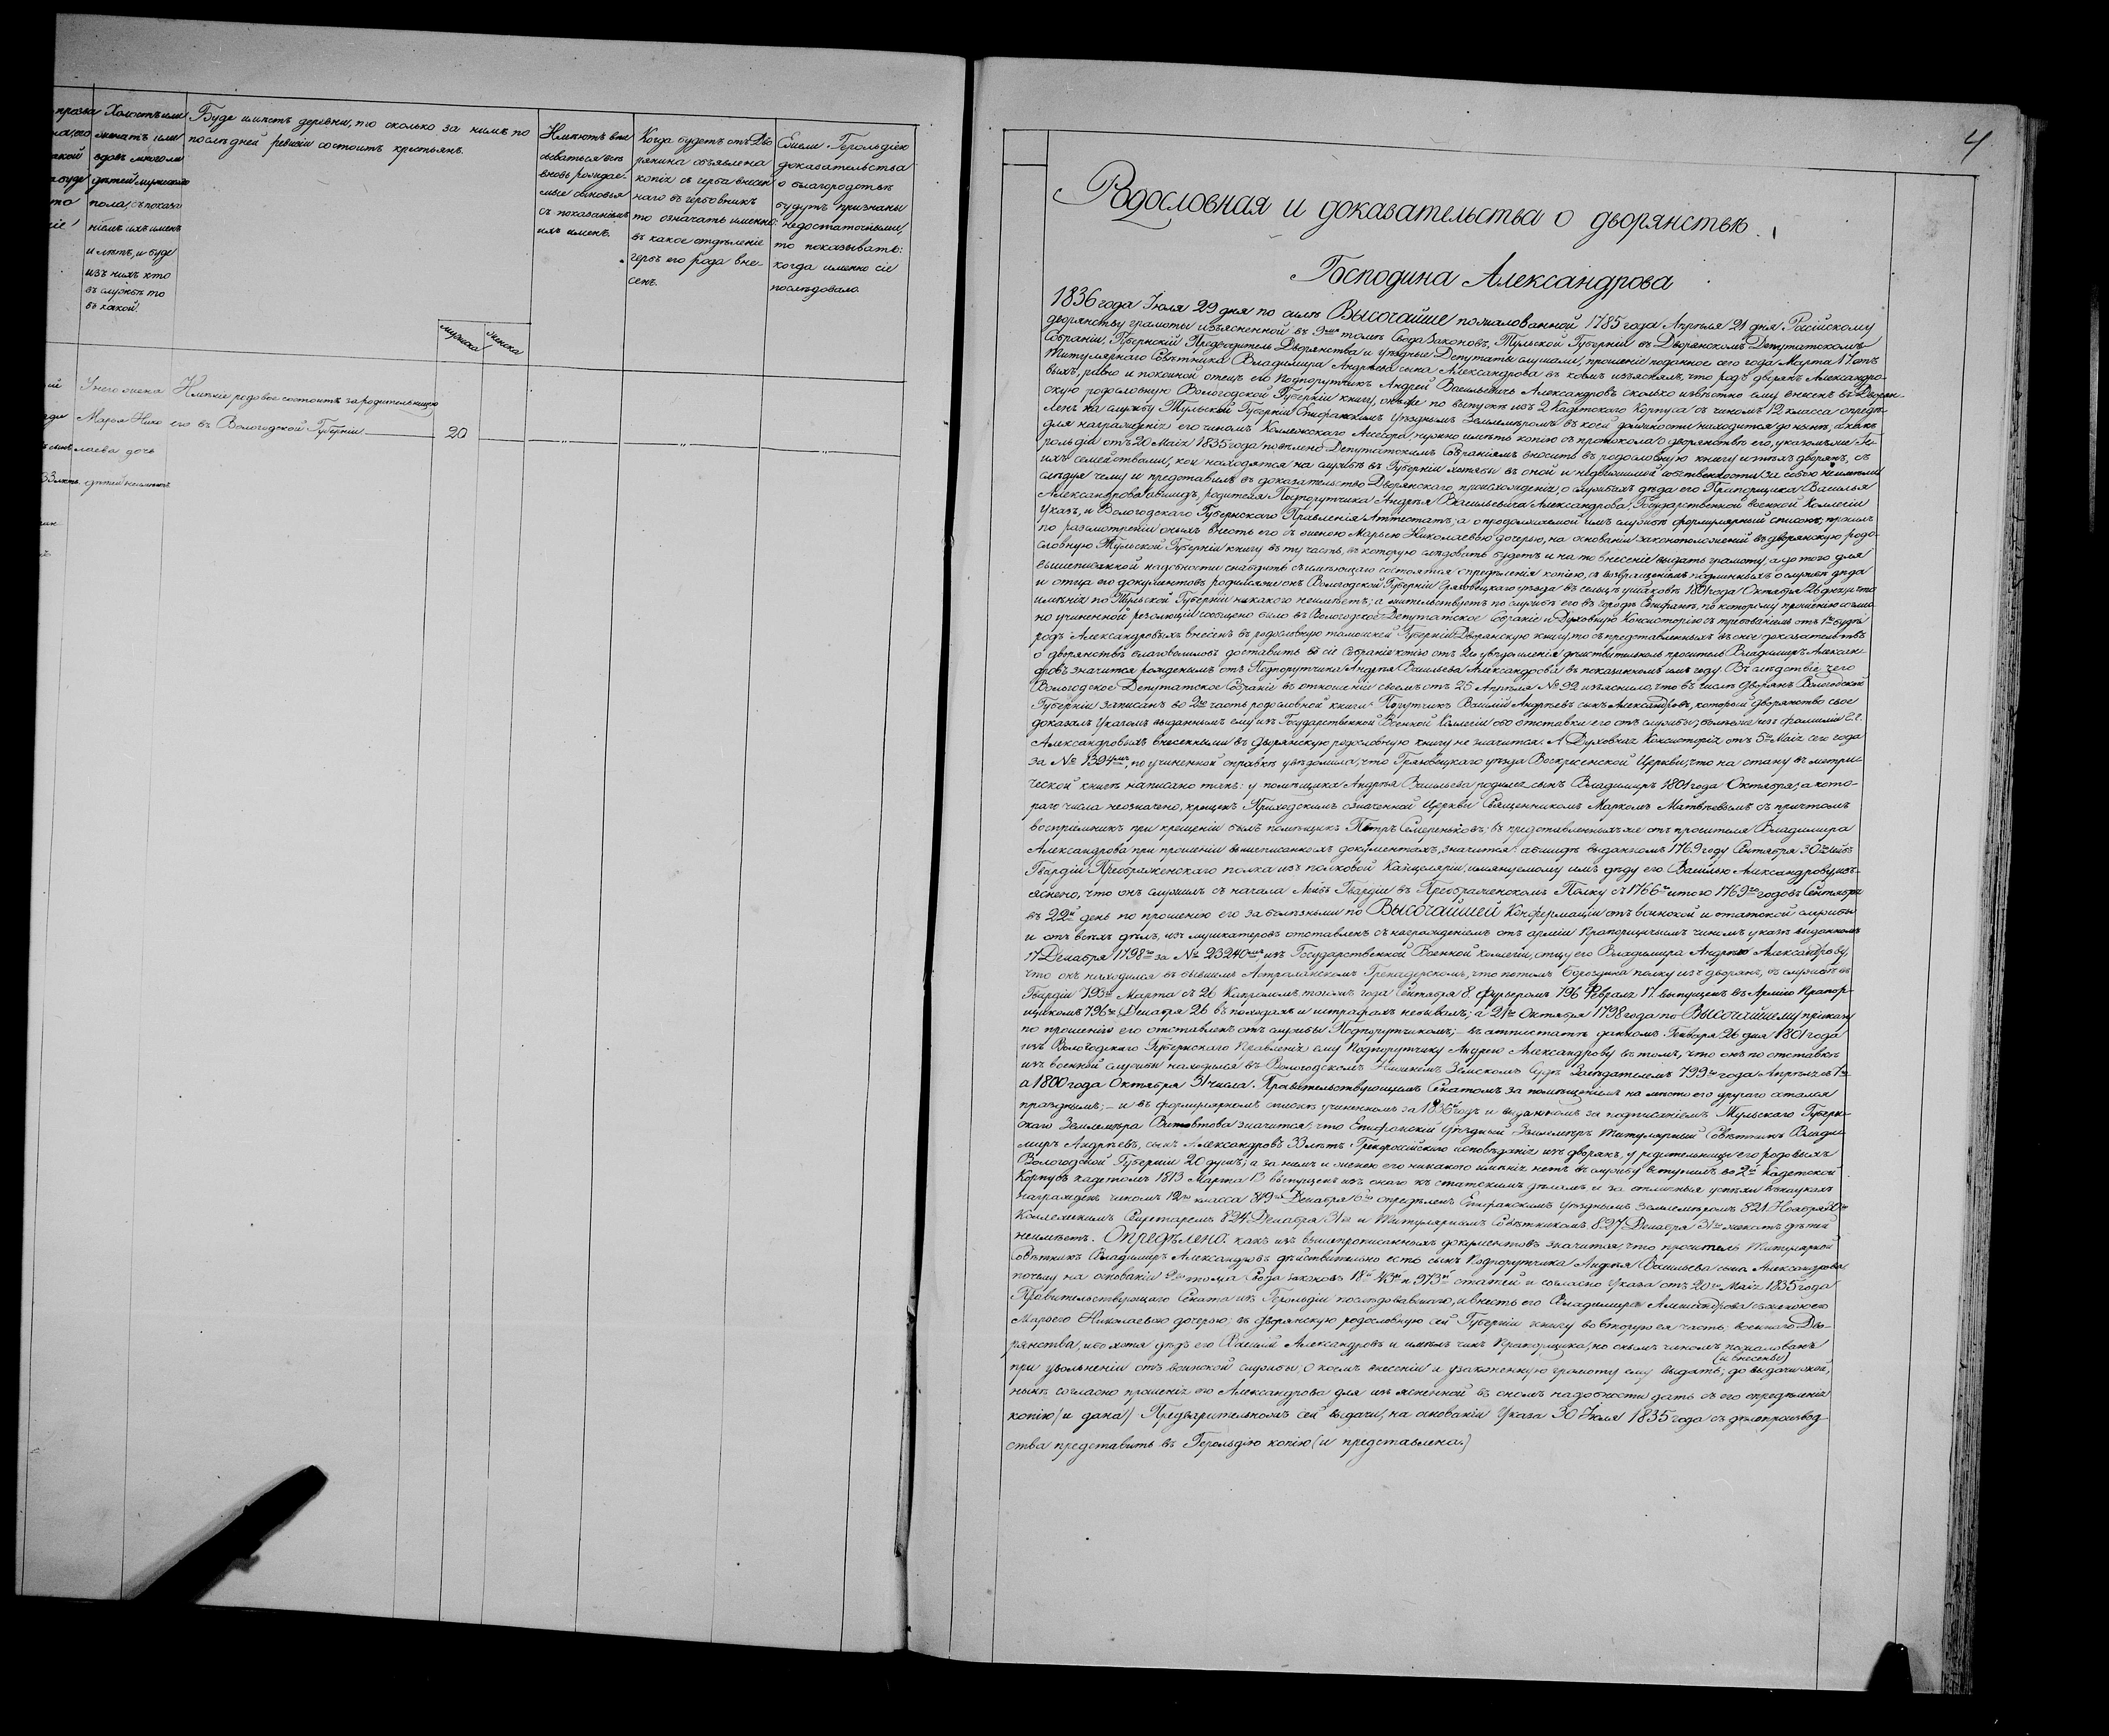 Холостъ или
женатъ или
вдовъ много ли
дѣтей мужеска
пола, съ показа
ніемъ ихъ именъ
и лѣтъ, и буде
изъ нихъ кто
въ службѣ то
въ какой.
Буде имѣетъ деревни, то сколько за нимъ по
послѣдней ревизіи состоитъ крестьянъ.
мужеска
женска
вновь рождае-
мые сыновья
съ показаніемъ
ихъ именъ.
Когда будетъ отъ Дво
рянина объявлена
копія съ герба внесен
наго въ гербовникъ
то означать именно:
въ какое отдѣленіе
гербъ его рода вне-
сенъ.
Герольдіею
доказательства
о благородствѣ
будутъ признаны
недостаточными,
то показывать:
когда именно сіе
послѣдовало.
У него жена
Марья Нико
лаева дочь
дѣтей неимѣетъ
Имѣніе родовое состоитъ за родительницею
его въ Вологодской Губерніи
20
4
Родословная и доказательства о дворянствѣ
Господина Александрова
1836 года Іюля 29 дня по силѣ Высочайше пожалованной 1785 года Апрѣля 21 дня Россійскому
дворянству грамоты изъясненной въ 9 томѣ Свода Законовъ, Тульской Губерніи въ Дворянскомъ Депутатскомъ
Собраніи, Губернскій Предводитель Дворянства и уѣздные Депутаты слушали, прошеніе поданное сего года Марта 17 отъ
Титулярнаго Совѣтника Владимира Андрѣева сына Александрова въ коемъ изъяснялъ, что родъ дворянъ Александро-
выхъ, равно и покойной отецъ его Подпорутчикъ Андрей Васильевичь Александровъ сколько извѣстно ему внесенъ въ Дворян-
скую родословную Вологодской Губерніи книгу, онъ же по выпускѣ изъ 2 Кадетскаго Корпуса съ чиномъ 12 класса опредѣ-
ленъ на службу Тульской Губерніи Епифанскимъ уѣзднымъ Землемѣромъ въ коей должности находится до нынѣ, а какъ
для награжденія его чиномъ Коллежскаго Асессора, нужно имѣть копію съ протокола о дворянствѣ его, указомъ же Ге-
рольдіи отъ 20 Маія 1835 года повелѣно Депутатскимъ Собраніямъ вносить въ родословную книгу и тѣхъ дворянъ, съ
ихъ семействами, кои находятся на службѣ въ Губерніи хотябы въ оной и недвижимой собственности за собою неимѣли
слѣдуя чему и представилъ въ доказательство Дворянскаго происхожденія, о службахъ дѣда его Прапорщика Василья
Александрова абшидъ, родителя Подпорутчика Андрея Васильевича Александрова, Государственной военной Коллегіи
Указъ, и Вологодскаго Губернскаго Правленія Аттестатъ, а о продолжаемой имъ службѣ формулярный списокъ, просилъ
по разсмотреніи оныхъ внесть его съ женою Марьею Николаевою дочерью, на основаніи законоположеній въ дворянскую родо-
словную Тульской Губерніи книгу въ ту часть, въ которую слѣдовать будетъ и на то внесеніе выдать грамоту, а до того для
вышеписанной надобности снабдить съ имѣющаго состоятся опредѣленія копіею, съ возвращеніемъ подлинныхъ о службѣ дѣда
и отца его документовъ родился же онъ Вологодской Губерніи Грязовецкаго уѣзда въ сельцѣ Ушаковѣ 1801 года Октября 26 дня, и что
имѣнія по Тульской Губерніи никакого неимѣетъ; а жительствуетъ по службѣ его въ городѣ Епифанѣ, по которому прошенію соглас
но учиненной резолюціи сообщено было въ Вологодское Депутатское Собраніе и Духовную Консисторію съ требованіемъ отъ 1го буде
родъ Александровыхъ внесенъ въ родословную тамошней Губерніи Дворянскую книгу, то съ представленныхъ въ оное доказательствъ
о дворянствѣ благоволилобъ доставить въ сіе Собраніе копію отъ 2го увѣдомленія дѣйствительноль проситель Владимиръ Алексан-
дровъ значится рожденымъ отъ Подпорутчика Андрѣя Васильева Александрова въ показанномъ имъ году. Въ слѣдствіе чего
Вологодское Депутатское Собраніе въ отношеніи своемъ отъ 25 Апрѣля № 92 изъяснило, что въ числѣ дворянъ Вологодской
Губерніи записанъ во 2ю часть родословной книги Порутчикъ Василій Андрѣевъ сынъ Александровъ, которой дворянство свое
доказалъ Указомъ выданнымъ ему изъ Государственной Военной Коллегіи обо отставкѣ его отъ службы; болѣе же изъ фамиліи Г.г.
Александровыхъ внесенными въ дворянскую родословную книгу не значится. А Духовная Консисторія отъ 5го Маія сего года
за № 1394, по учиненной справкѣ увѣдомила, что Грязовецкаго уѣзда Воскресенской Церкви, что на стану въ метри-
ческой книгѣ написано такъ: у помѣщика Андрѣя Васильева родился сынъ Владимиръ 1801 года Октября, а кото-
раго числа неозначено, крещенъ Приходскимъ означенной Церкви Священникомъ Маркомъ Матвѣевымъ съ причтомъ
воспріемникъ при крещеніи былъ помѣщикъ Петръ Семереньковъ; въ представленныхъ же отъ просителя Владимира
Александрова при прошеніи вышеписанныхъ документахъ, значится: абшидѣ выданномъ 1769 году Сентября 30го Лейбъ
Гвардіи Преображенскаго полка изъ полковой Канцеляріи, имянуемому имъ дѣду его Василью Александрову изъ-
яснено, что онъ служилъ съ начала Лейбъ Гвардіи въ Преображенскомъ Полку съ 1766го и того 1769го годовъ Сентября
въ 22й день по прошенію его за болѣзньми по Высочайшей Конфирмаціи отъ воинской и статской службы
и отъ всѣхъ дѣлъ, изъ мушкатеровъ отставленъ съ награжденіемъ отъ арміи Прапорщичьимъ чиномъ указѣ выданномъ
17 Декабря 1798го за № 23240, изъ Государственной Военной Коллегіи, отцу его Владимира Андрѣю Александрову,
что онъ находился въ бывшемъ Астраханскомъ Гренадерскомъ, что потомъ Бороздина полку изъ дворянъ, въ службѣ въ
Гвардіи 793го Марта съ 26 Капраломъ тогожъ года Сентября 8 Фурьеромъ 796 Февраля 17 выпущенъ въ Армію Прапор-
щикомъ 796го Декабря 26 въ походахъ и штрафахъ небывалъ; а 21го Октября 1798 года по Высочайшему приказу
по прошенію его отставленъ отъ службы Подпорутчикомъ; – въ аттистатѣ данномъ Генваря 26 дня 1801 года
изъ Вологодскаго Губернскаго Правленія ему Подпорутчику Андрею Александрову въ томъ, что онъ по отставкѣ
изъ военной службы находился въ Вологодскомъ Нижнемъ Земскомъ Судѣ Засѣдателемъ 799го года Апрѣля съ 1го
а 1800 года Октября 31 числа. Правительствующимъ Сенатомъ за помѣщеніемъ на мѣсто его другаго остался
празднымъ; – и въ формулярномъ спискѣ учиненномъ за 1836й годъ и выданномъ за подписаніемъ Тульскаго Губерн-
скаго Землемѣра Витовтова значится, что Епифанскій Уѣздный Землемѣръ Титулярный Совѣтникъ Влади-
миръ Андрѣевъ, сынъ Александровъ 33 лѣтъ Грекороссійскаго исповѣданія изъ дворянъ, у родительницы его родовыхъ
Вологодской Губерніи 20 душъ; а за нимъ и женою его никакого имѣнія нетъ въ службу вступилъ во 2й Кадетской
Корпусъ кадетомъ 1813 Марта 13 выпущенъ изъ онаго къ статскимъ дѣламъ и за отличныя успѣхи въ наукахъ
награжденъ чиномъ 12го класса 819го Декабря 16го опредѣленъ Епифанскимъ Уѣзднымъ Землемѣромъ 821 Ноября 30го
Коллежскимъ Секретаремъ 824 Декабря 31го и Титулярнымъ Совѣтникомъ 827 Декабря 31го женатъ дѣтей
неимѣетъ. Опредѣлено: какъ изъ вышепрописанныхъ документовъ значится, что проситель Титулярной
Совѣтникъ Владимиръ Александровъ дѣйствительно есть сынъ Подпорутчика Андрѣя Васильева сына Александрова
почему на основаніи 9го тома Свода законовъ 18й 43й и 973й статей и согласно Указа отъ 20го Маія 1835 года
Правительствующаго Сената изъ Герольдіи послѣдовавшаго, и внесть его Владимира Александрова съ женою его
Марьею Николаевою дочерью, въ дворянскую родословную сей Губерніи книгу во вторую ея часть, военнаго Дво-
рянства, ибо хотя дѣдъ его Василій Александровъ и имѣлъ чинъ Прапорщика, но онымъ чиномъ пожалованъ
(и внесены)
при увольненіи отъ воинской службы; О коемъ внесеніи и узаконенную грамоту ему выдать; до выдачи оной,
нынѣ согласно прошенія его Александрова для изъясненной въ ономъ надобности дать съ его опредѣленія
копію (и дана) Предварительномъ сей выдачи, на основаніи Указа 30 Іюля 1835 года съ дѣлопроизвод
ства представить въ Герольдію копію (и представлена.)